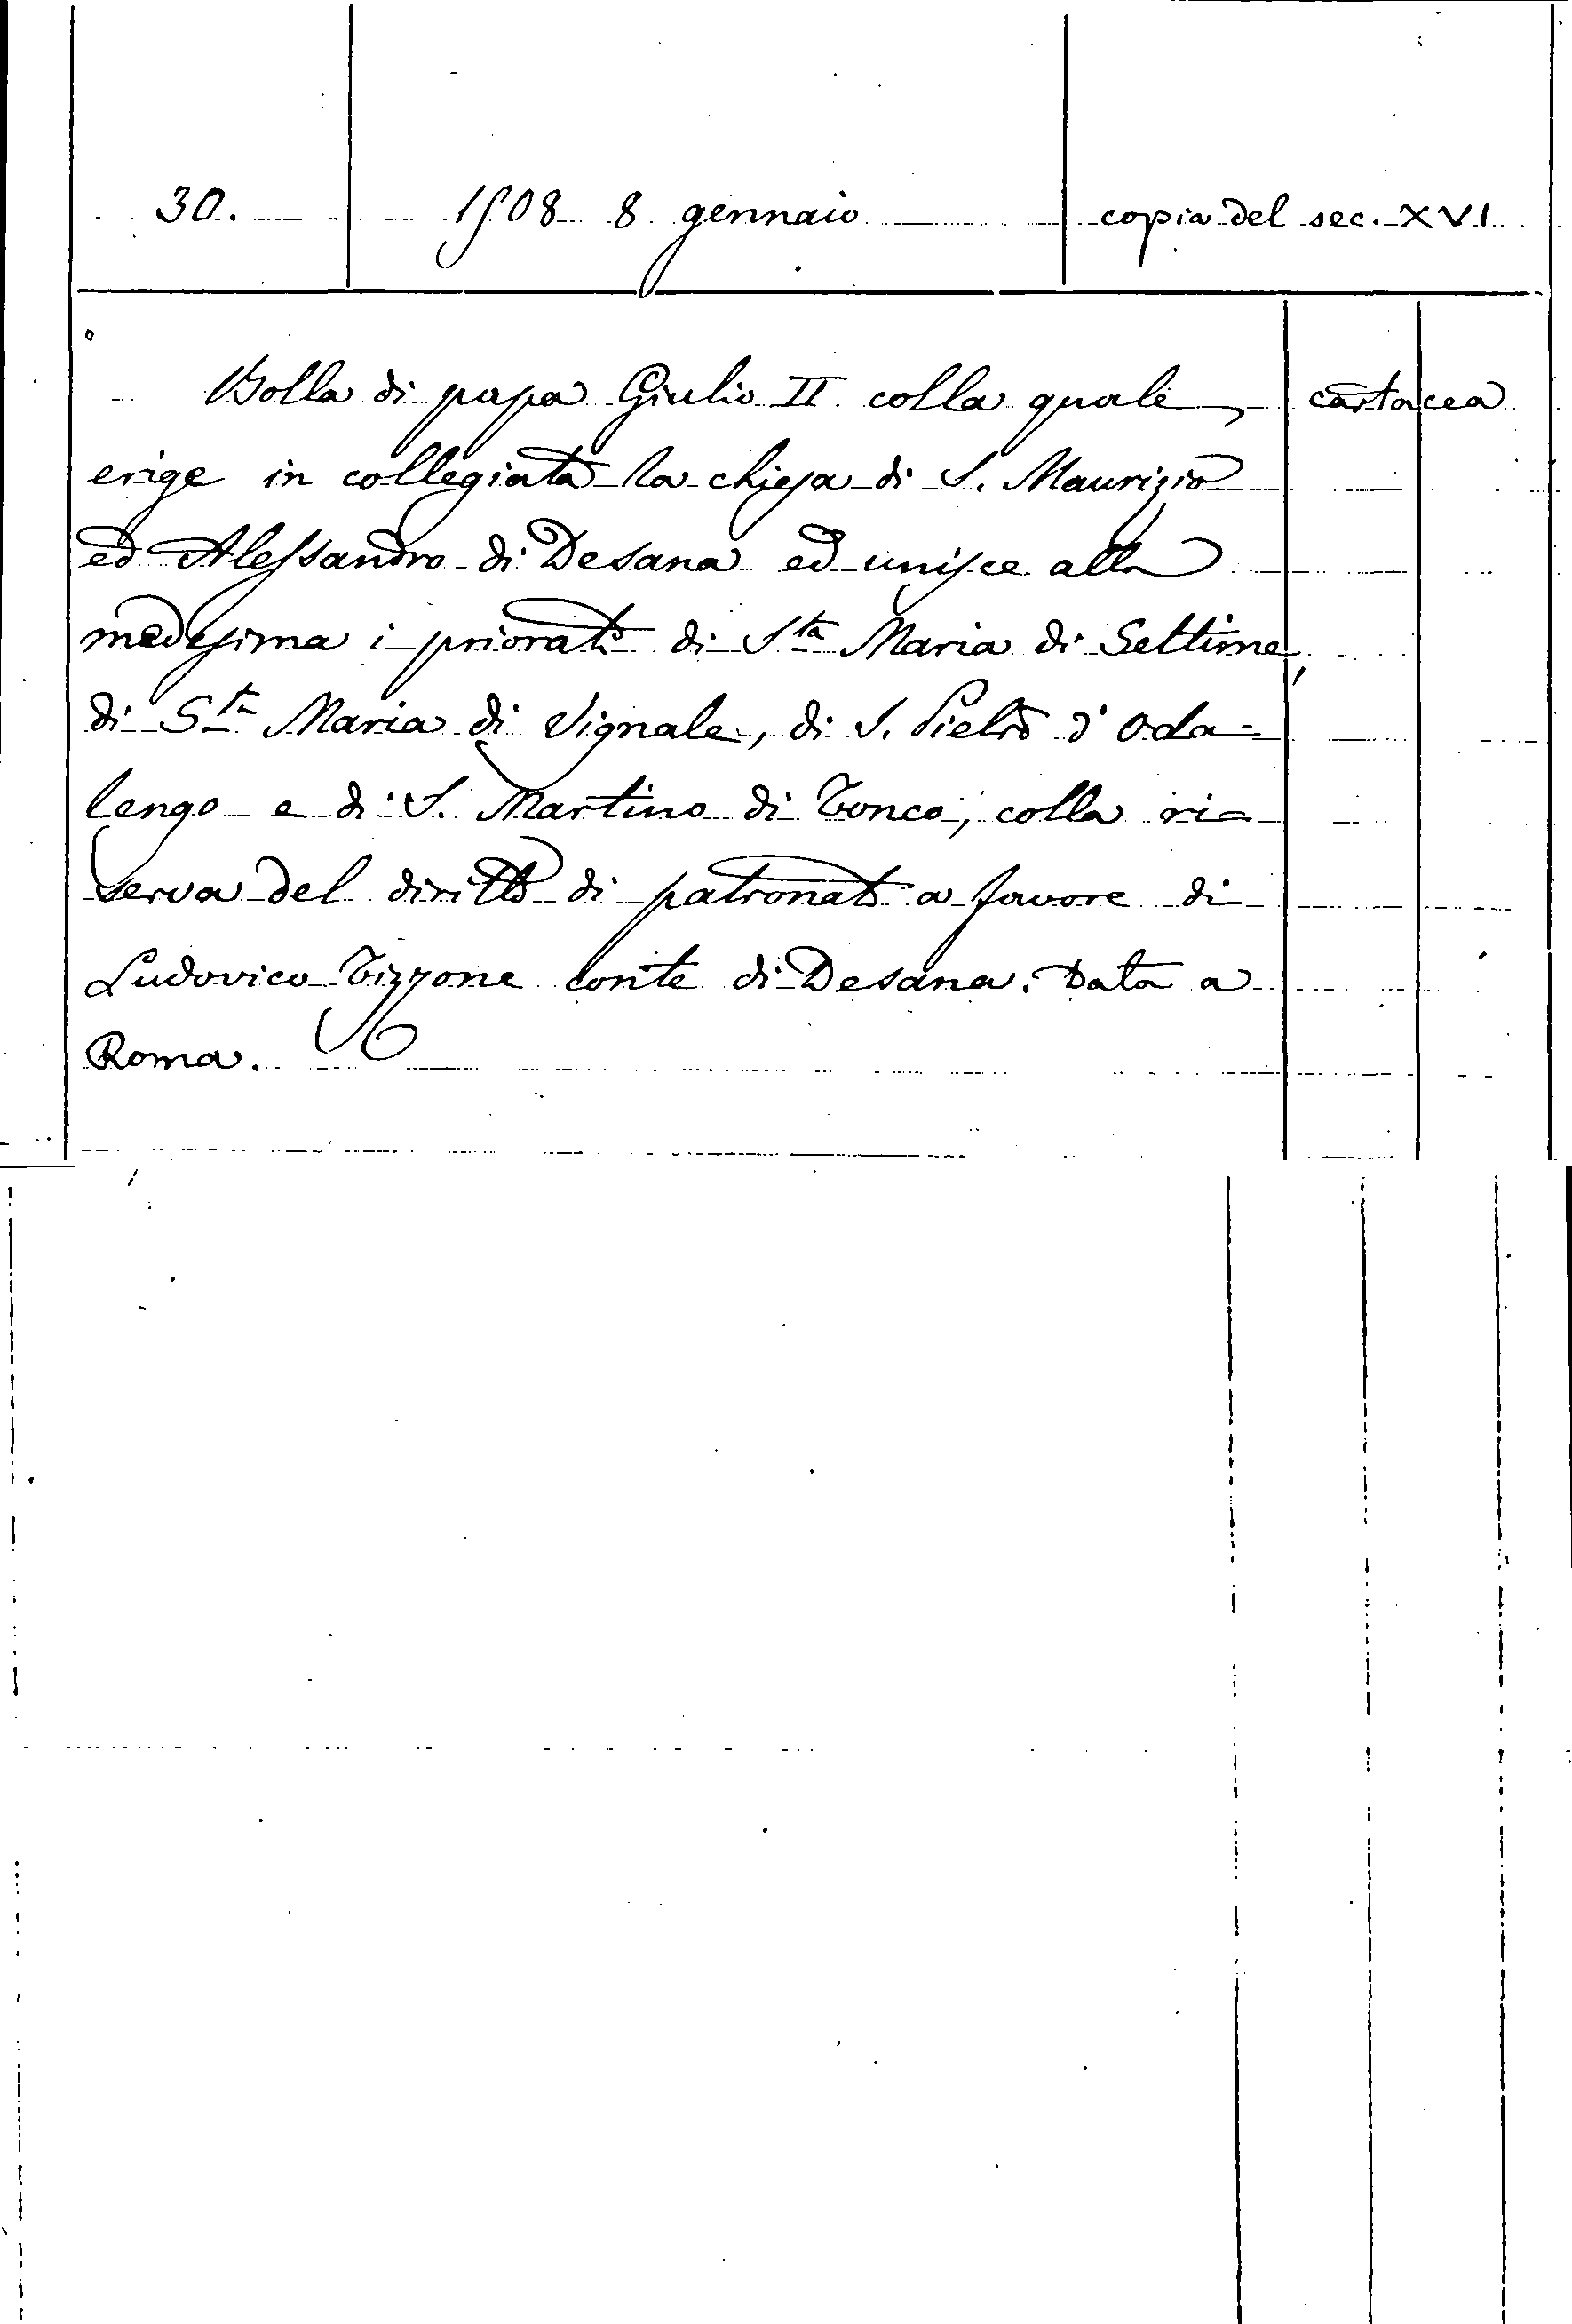 30. 1508 8 gennaio copia del sec. XVI
Bolla di papa Giulio II colla quale, cartacea
erige in collegiata la chiesa di S. Maurizio
ed Alessandro di Desana ed unisce alla
medesima i priorati di Sta Maria di Settime,
di Sta Maria di Vignale, di S. Pietro d'Oda=
lengo e di S. Martino di Tonco, colla ri=
serva del diritto di patronato a favore di
Ludovico Tizzone conte di Desana. Data a
Roma.